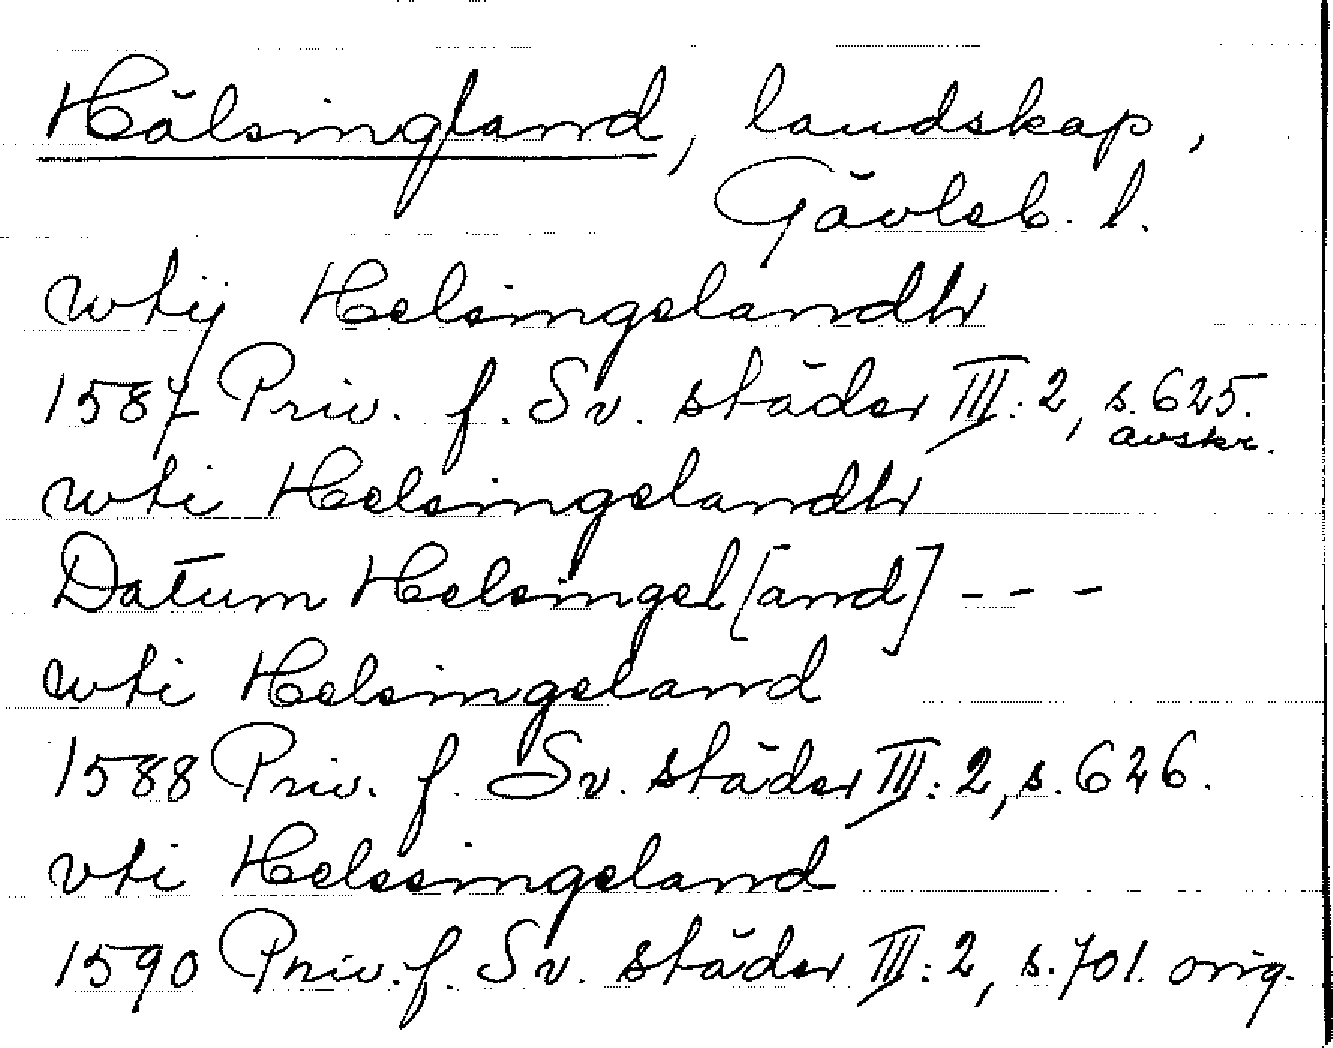 Hälsingland, landskap,
Gävleb. l.
wtij Helsingelandh
1587 Priv. f. Sv. städer III:2, s. 625.
avskr.
wti Helsingelandh
Datum Helsingel[and] - - -
wti Helsingeland
1588 Priv. f. Sv. städer III:2, s. 626.
vti Helssingeland
1590 Priv. f. Sv. städer III:2, s. 701. orig.